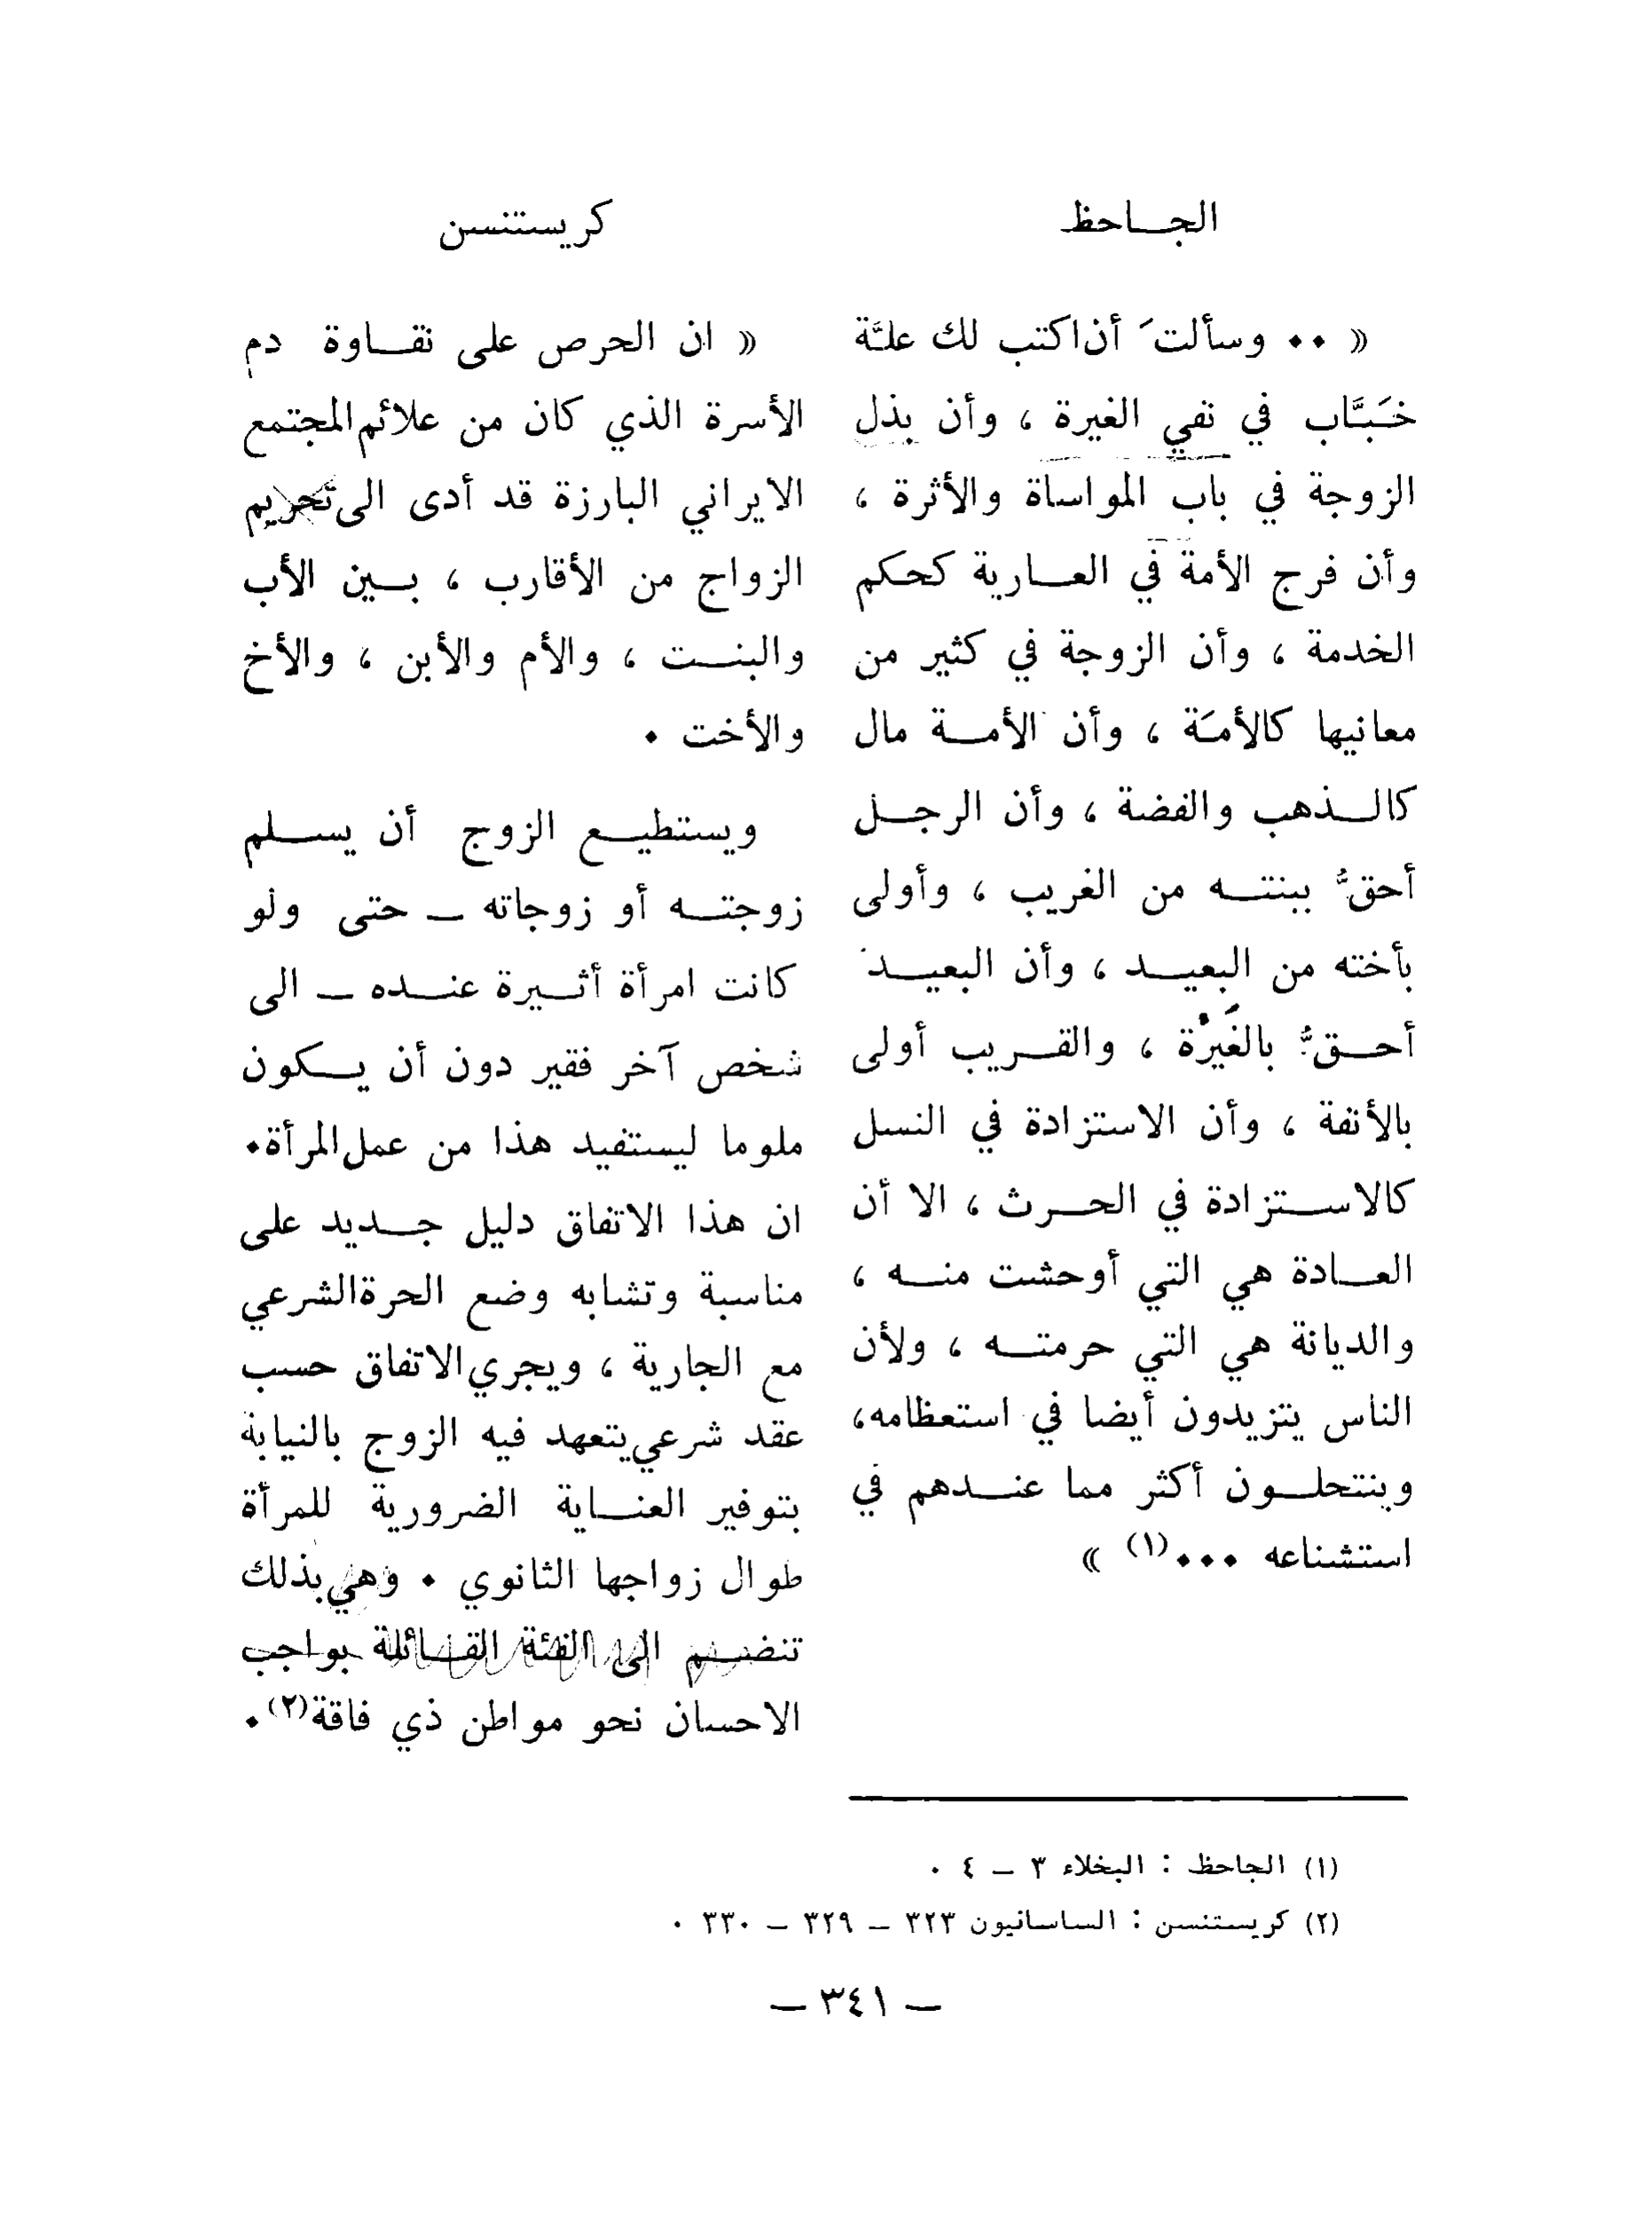 الجاحظ
« ٠٠ وسألتَ أن اكتب لك علَّة
خَبَّاب في نفي الغيرة ، وأن بذل
الزوجة في باب المواساة والأثرة ،
وأن فرج الأمة في العارية كحكم
الخدمة ، وأن الزوجة في كثير من
معانيها كالأمَة ، وأن الأمة مال
كالذهب والفضة ، وأن الرجل
أحقُّ ببنته من الغريب ، وأولى
بأخته من البعيد ، وأن البعيد
أحقُّ بالغَيْرة ، والقريب أولى
بالأنفة ، وأن الاستزادة في النسل
كالاستزادة في الحرث ، الا أن
العادة هي التي أوحشت منه ،
والديانة هي التي حرمته ، ولأن
الناس يتزيدون أيضا في استعظامه،
وينتحلون أكثر مما عندهم في
استشناعه ٠٠٠(١) »
كريستنسن
« ان الحرص على نقاوة دم
الأسرة الذي كان من علائم المجتمع
الايراني البارزة قد أدى الى تحريم
الزواج من الأقارب ، بين الأب
والبنت ، والأم والأبن ، والأخ
والأخت ٠
ويستطيع الزوج أن يسلم
زوجته أو زوجاته – حتى ولو
كانت امرأة أثيرة عنده – الى
شخص آخر فقير دون أن يكون
ملوما ليستفيد هذا من عمل المرأة٠
ان هذا الاتفاق دليل جديد على
مناسبة وتشابه وضع الحرة الشرعي
مع الجارية ، ويجري الاتفاق حسب
عقد شرعي يتعهد فيه الزوج بالنيابة
بتوفير العناية الضرورية للمرأة
طوال زواجها الثانوي ٠ وهي بذلك
تنضم الى الفئة القائلة بواجب
الاحسان نحو مواطن ذي فاقة(٢)٠
(١) الجاحظ : البخلاء ٣ – ٤ ٠
(٢) كريستنسن : الساسانيون ٣٢٣ – ٣٢٩ – ٣٣٠ ٠
– ٣٤١ –